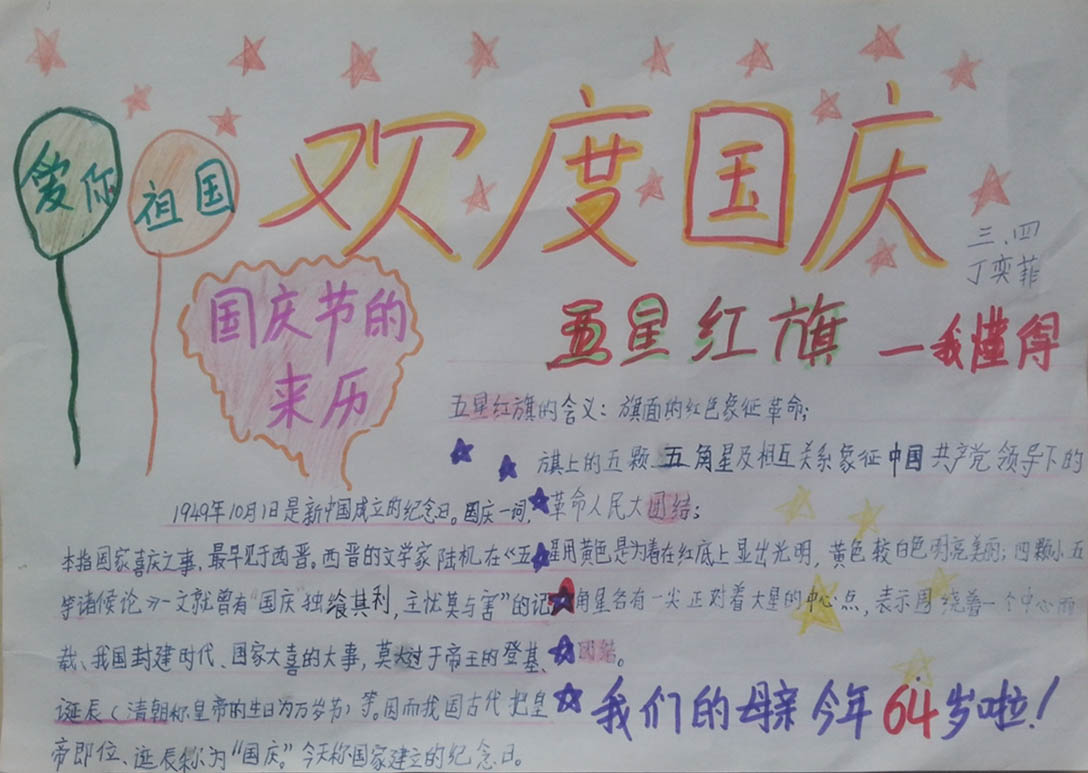 欢度国庆
爱你
祖国
三、四
丁奕菲
国庆节的
来历
五星红旗 一我懂得
五星红旗的含义：旗面的红色象征革命；
旗上的五颗五角星及相互关系象征中国共产党领导下的
革命人民大团结；
星用黄色是为着在红底上显出光明，黄色较白色明亮美丽；四颗小五
角星各有一尖正对着大星的中心点，表示围绕着一个中心而
团结。
1949年10月1日是新中国成立的纪念日。国庆一词，
本指国家喜庆之事，最早见于西晋。西晋的文学家陆机在《五
等诸侯论》一文就曾有“国庆”独飨其利，主忧莫与害”的记
载、我国封建时代、国家大喜的大事，莫大过于帝王的登基、
诞辰（清朝称皇帝的生日为万岁节）等。因而我国古代把皇
帝即位、诞辰称为“国庆”。今天称国家建立的纪念日。
我们的母亲今年64岁啦！